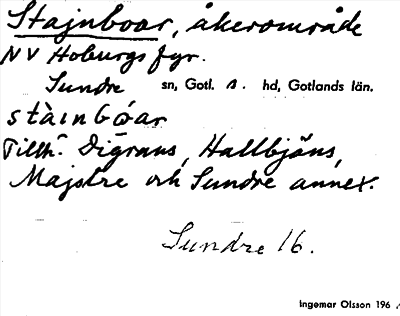 Stajnboar, åkerområde
NV Hoburgs fyr.
Sundre sn, Gotl. s. hd, Gotlands län.
stàinbóar
Tillh. Digrans, Hallbjäns,
Majstre och Sundre annex.
Sundre 16.
Ingemar Olsson 196